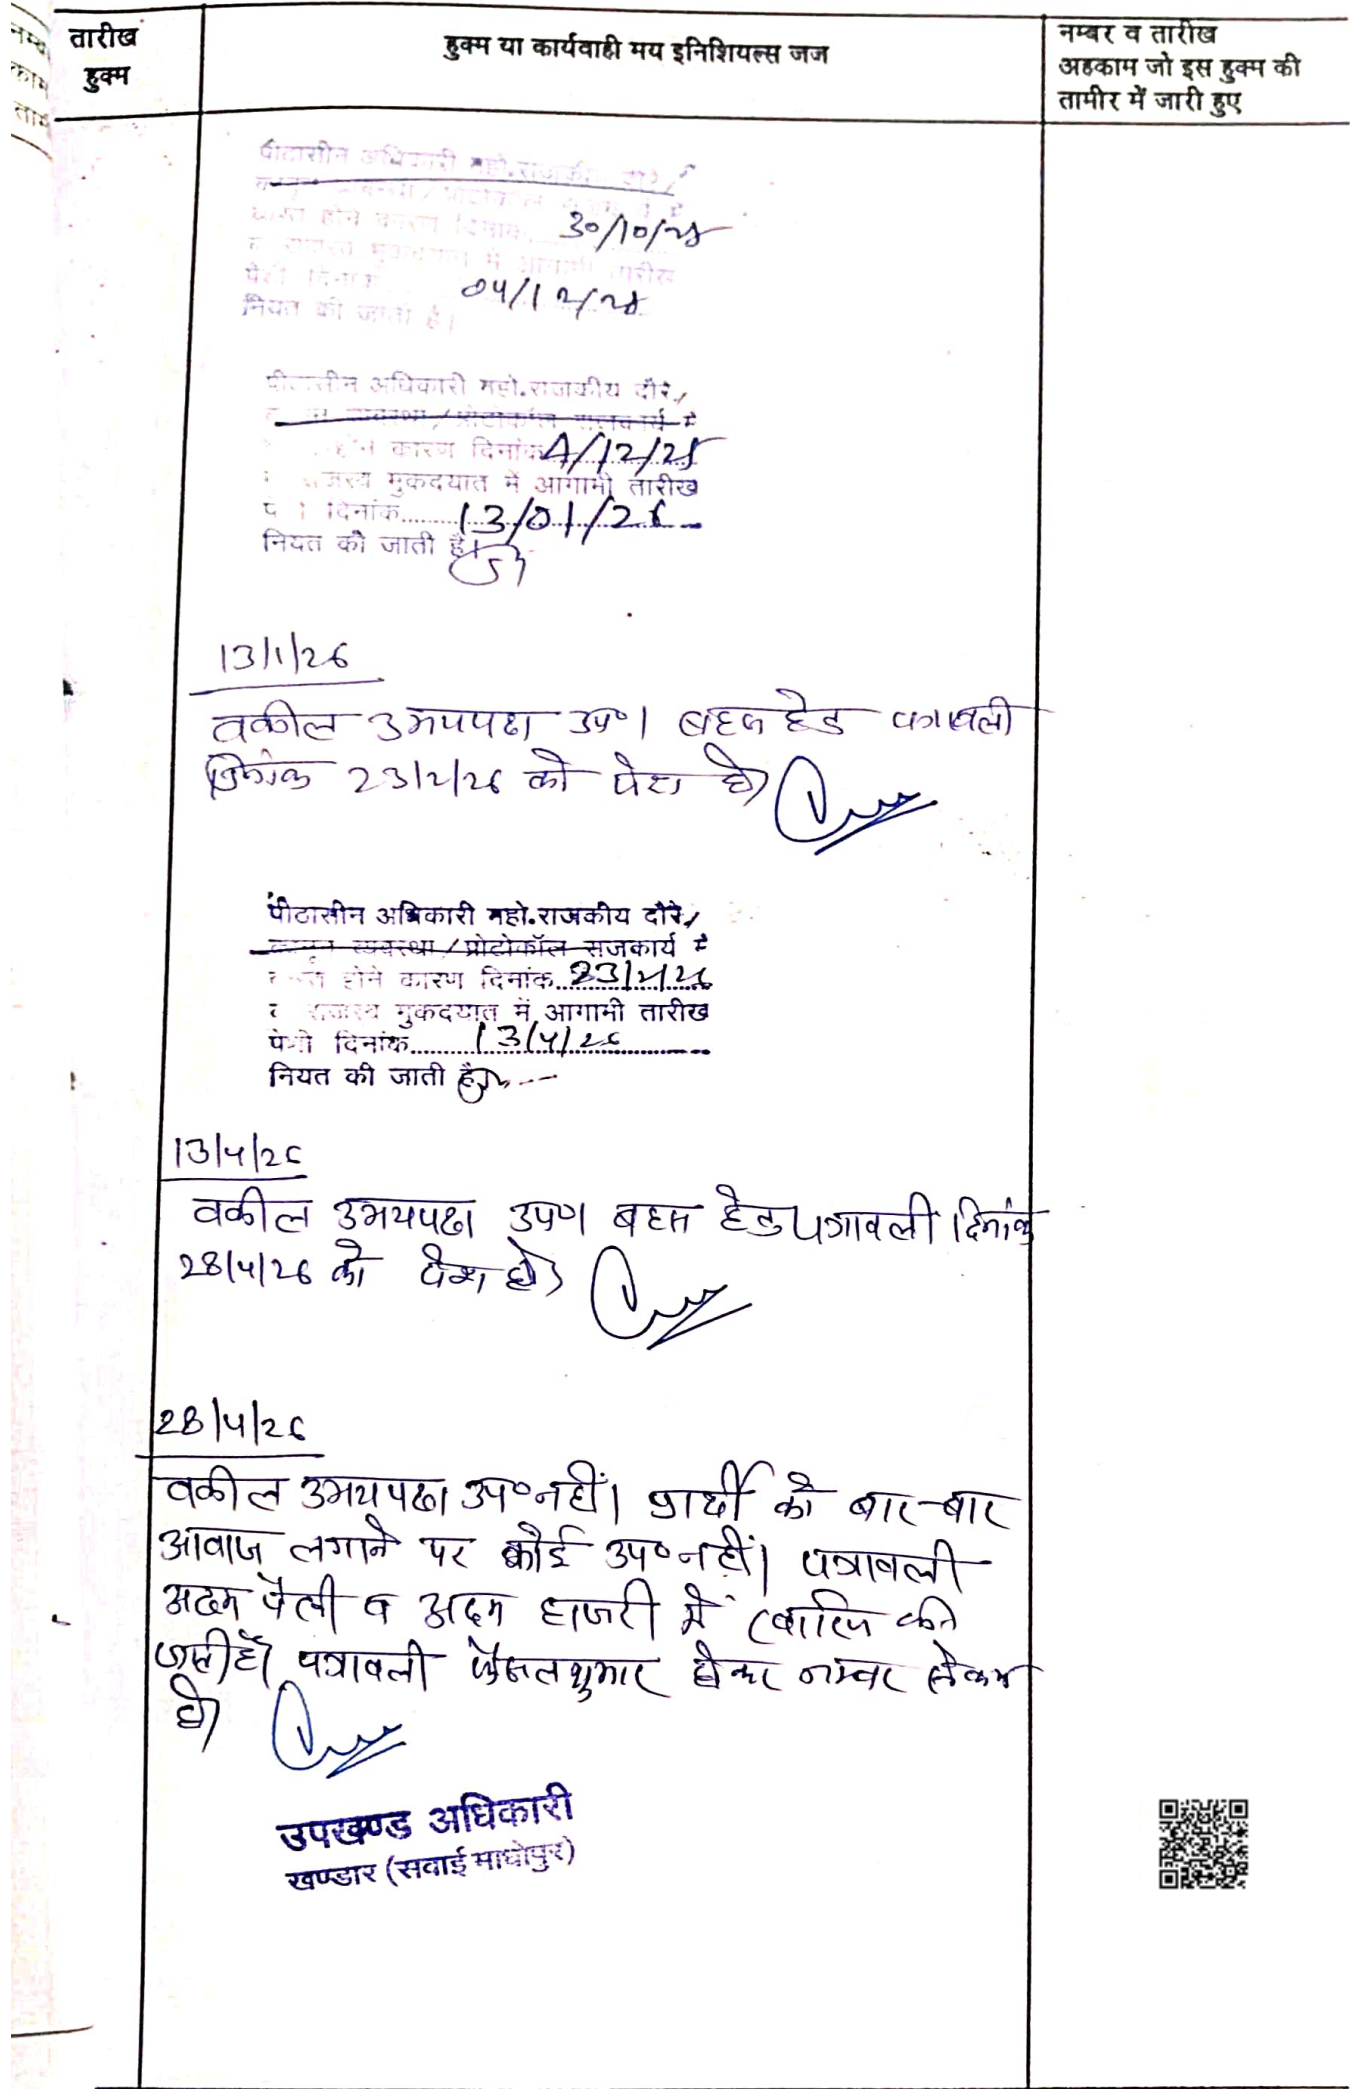 तारीख
हुक्म
हुक्म या कार्यवाही मय इनिशियल्स जज
नम्बर व तारीख
अहकाम जो इस हुक्म की
तामीर में जारी हुए
पीठासीन अधिकारी महो.राजकीय दौरे/
होने कारण दिनांक 30/10/25
मुकदयात में आगामी तारीख
पेशी दिनांक 04/12/25
नियत की जाती है।
पीठासीन अधिकारी महो.राजकीय दौरे/
व्यवस्था/प्रोटोकॉल राजकार्य में
होने कारण दिनांक 4/12/25
राजस्व मुकदयात में आगामी तारीख
पेशी दिनांक........13/01/26
नियत की जाती है।
13/1/26
वकील उभयपक्ष उप०। बहस हेतु पत्रावली
दिनांक 23/2/26 को पेश हो।
पीठासीन अधिकारी महो.राजकीय दौरे/
कानून व्यवस्था/प्रोटोकॉल राजकार्य में
होने कारण दिनांक..23/2/26
राजस्व मुकदयात में आगामी तारीख
पेशी दिनांक........13/4/26
नियत की जाती है
13/4/26
वकील उभयपक्ष उप०। बहस हेतु पत्रावली दिनांक
28/4/26 को पेश हो।
28/4/26
वकील उभयपक्ष उप० नहीं। प्रार्थी को बार-बार
आवाज लगाने पर कोई उप० नहीं। पत्रावली
अदम पैरवी व अदम हाजरी में खारिज की
जाती है। पत्रावली फैसलशुमार होकर नम्बर से कम
हो।
उपखण्ड अधिकारी
खण्डार (सवाई माधोपुर)